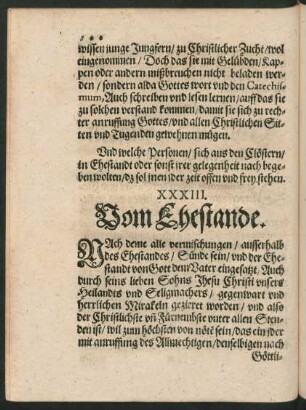 wissen junge Jungfern / zu Christlicher Zucht / wol
eingenommen / Doch das sie mit Gelübden / Kap-
pen oder andern mißbreuchen nicht beladen wer-
den / sondern alda Gottes wort vnd den Catechis-
mum, Auch schreiben vnd lesen lernen / auff das sie
zu solchem verstand kommen, damit sie sich zu rech-
ter anruffung Gottes / vnd allen Christlichen Sit-
ten vnd Tugenden gewehnen mügen.
Vnd welche Personen / sich aus den Clöstern /
in Ehestandt oder sonst irer gelegenheit nach bege-
ben wolten / dz sol jnen jder zeit offen vnd frey stehen.
XXXIII.
Vom Ehestande.
NAch deme alle vermischungen / ausserhalb
des Ehestandes / Sünde sein / vnd der Ehe-
standt von Gott dem Vater eingesatzt. Auch
durch seins lieben Sohns Jhesu Christi vnsers
Heilandts vnd Seligmachers / gegenwart vnd
herrlichen Mirakeln gezieret worden / vnd also
der Christlichste vñ Fürnembste vnter allen Sten-
den ist / wil zum höchsten von nöte sein / das ein jder
mit anruffung des Allmechtigen / denselbigen nach
Göttli-